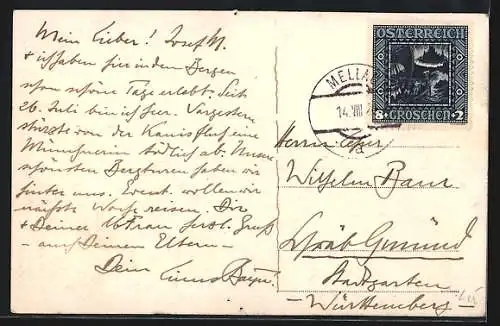 Mein Lieber! Josef M.
+ ich haben hier in den Bergen
schon schöne Tage erlebt. Seit
26. Juli bin ich hier. Vorgestern
stürzte von der Kanisfluh eine
Münchnerin tödlich ab. Unsere
schönsten Bergturen haben wir
hinter uns. Event. wollen wir
nächste Woche reisen. Dir
+ Deiner lb Frau herzl. Gruß
- auch Deinen Eltern -
Dein
ÖSTERREICH
8 GROSCHEN +2
MELLAU
14. VIII
a
Herrn
Wilhelm Baur
Schwäb Gmünd
Stadtgarten
- Württemberg -